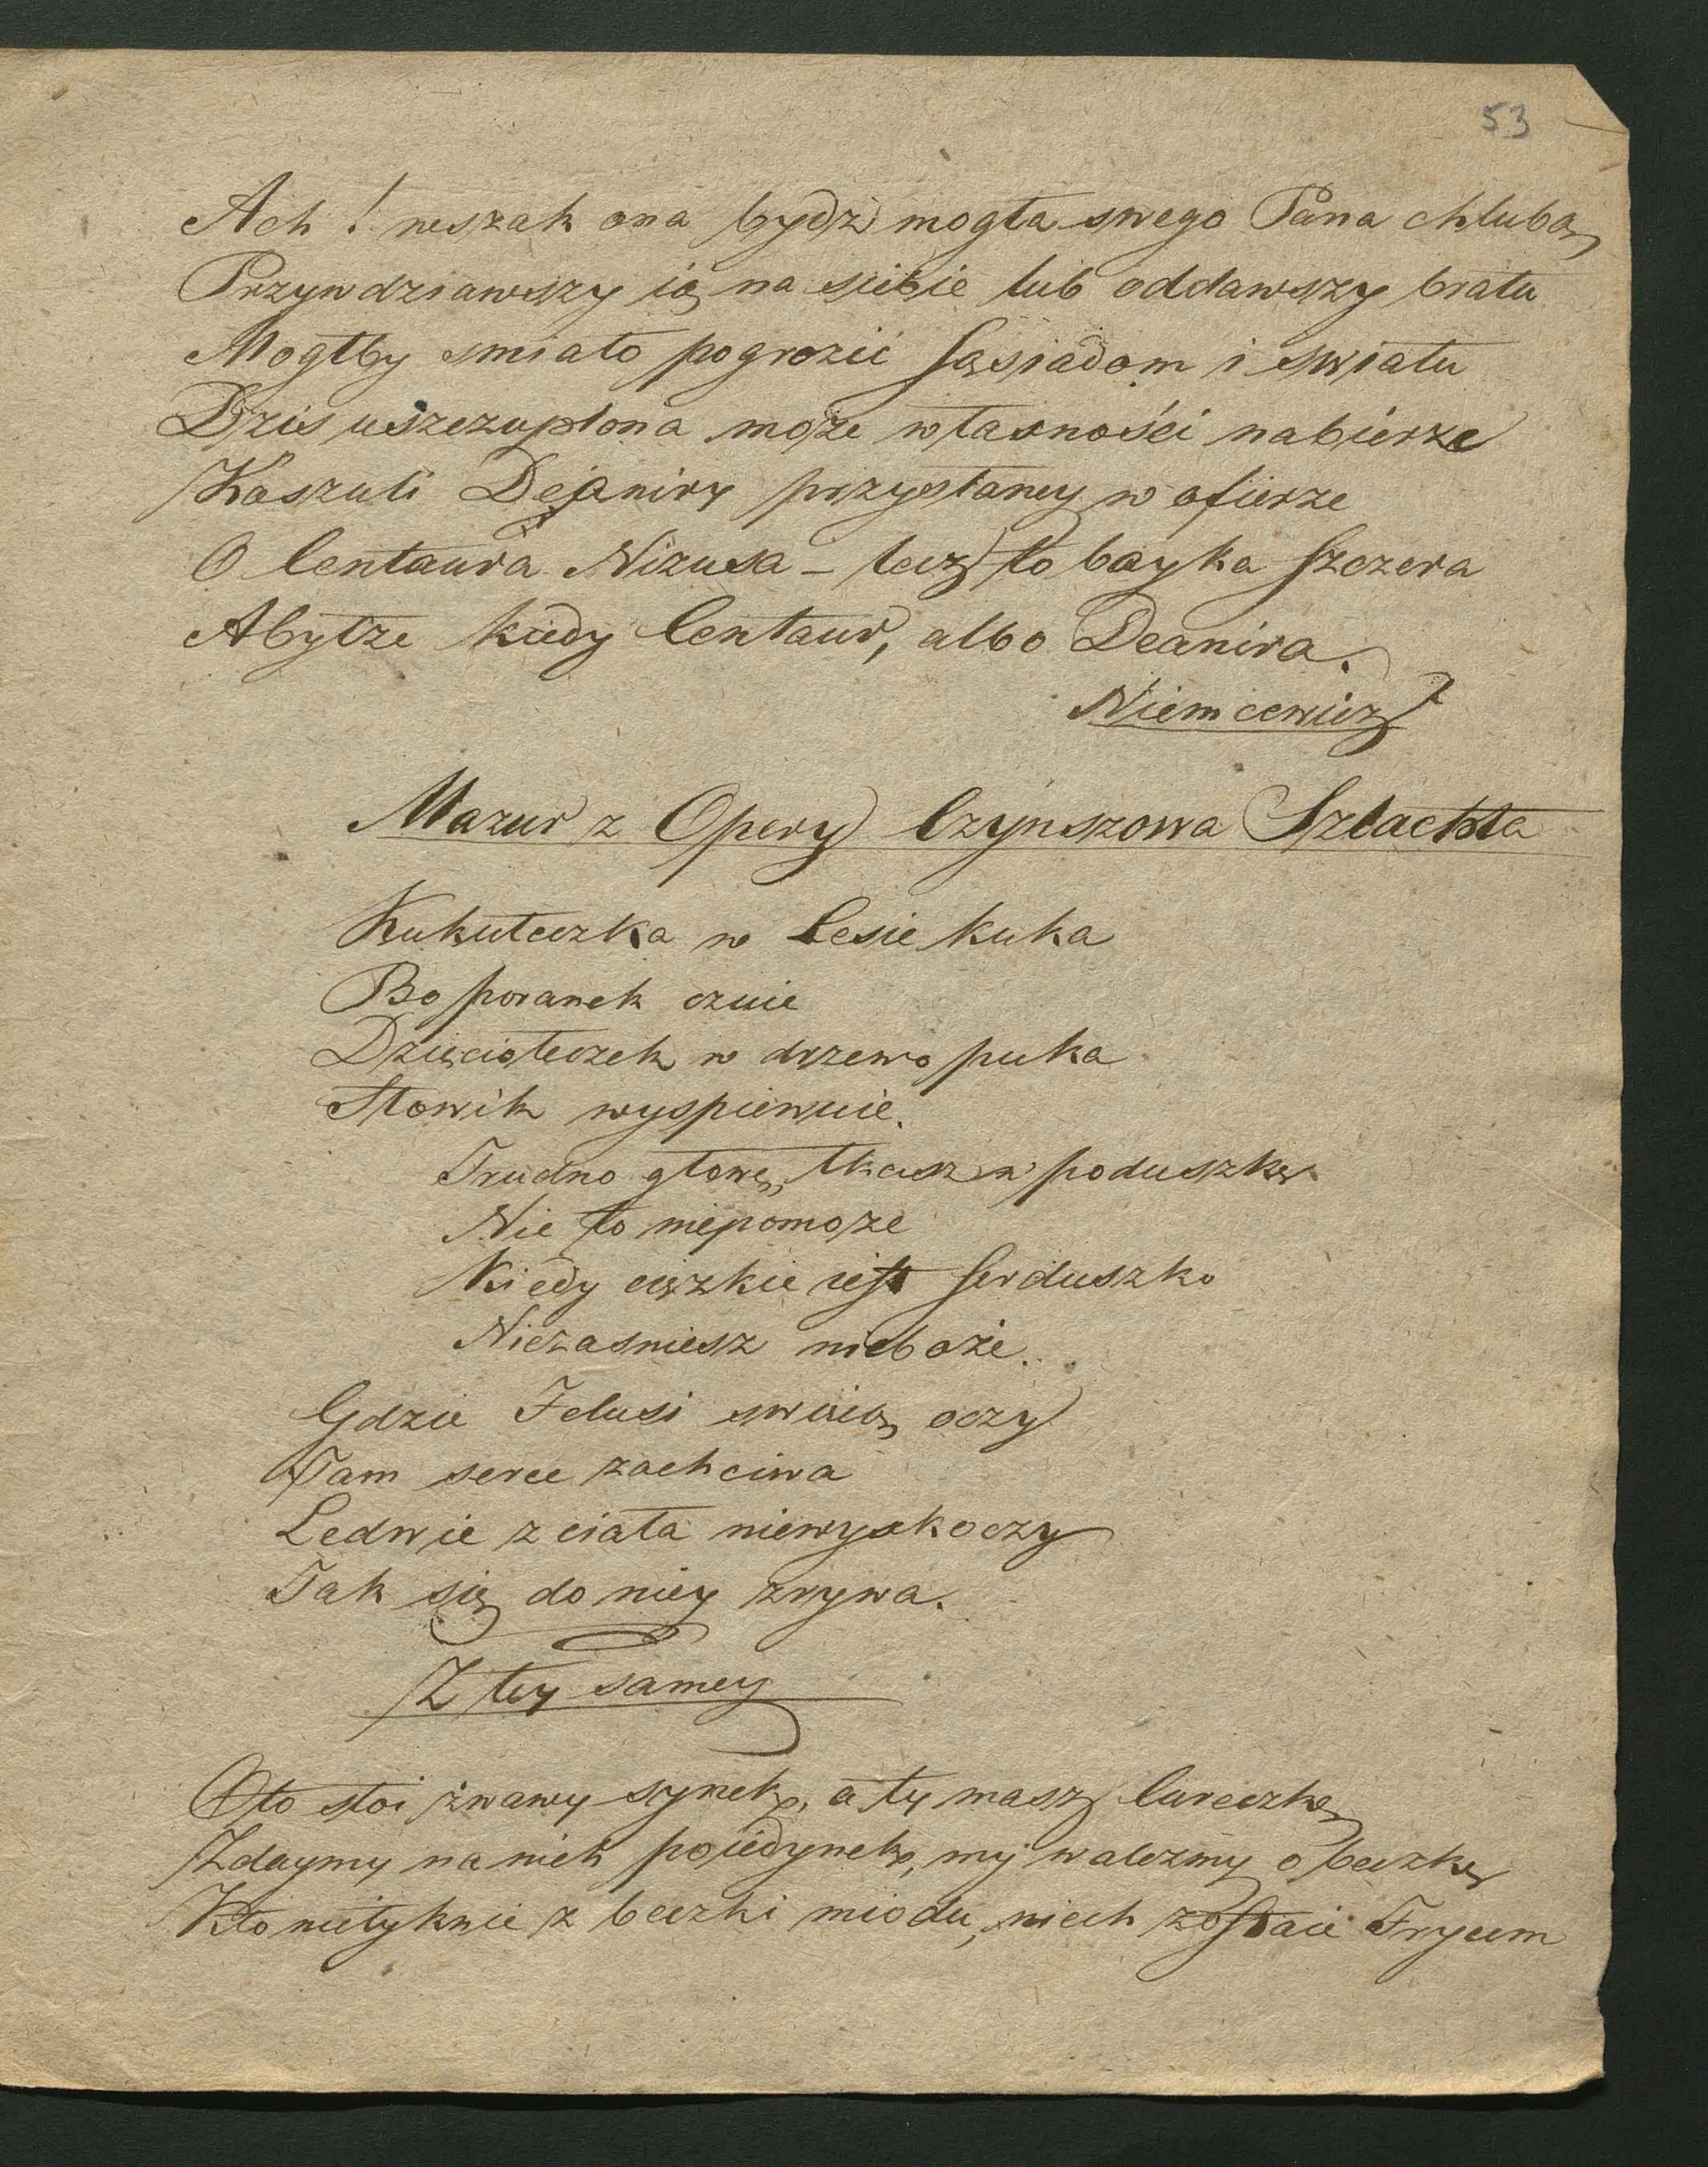 53
Ach! wszak ona bydź mogła swego Pana chlubą
Przywdziawszy ią na siebie lub oddawszy bratu
Mogłby smiało pogrozić sąsiadom i swiatu
Dzis uszczuplona może własności nabierze
Koszuli Dejaniry przysłaney w ofierze
O Centaura Nizusa – lecz to bayka szczera
Abyłże kiedy Centaur, albo Deanira.
Niemcewicz
Mazur z Opery Czynszowa Szlachta
Kukułeczka w lesie kuka
Bo poranek czuie
Dzięciołeczek w drzewo puka
Słowik wyspiewuie.
Trudno głowę tkasz w poduszkę
Nie to niepomoże
Kiedy ciężkie iest serduszko
Niezasniesz nieboże.
Gdzie Jelusi swiecą oczy
Tam serce zachciwa
Ledwie z ciała niewyskoczy
Tak się do niey zrywa.
Z tey samey
Oto stoi żwawy synek, a ty masz cureczkę
Zdaymy na nich poiedynek, my walczmy o beczkę
Kto nietyknie z beczki miodu, niech zostaie Frycem